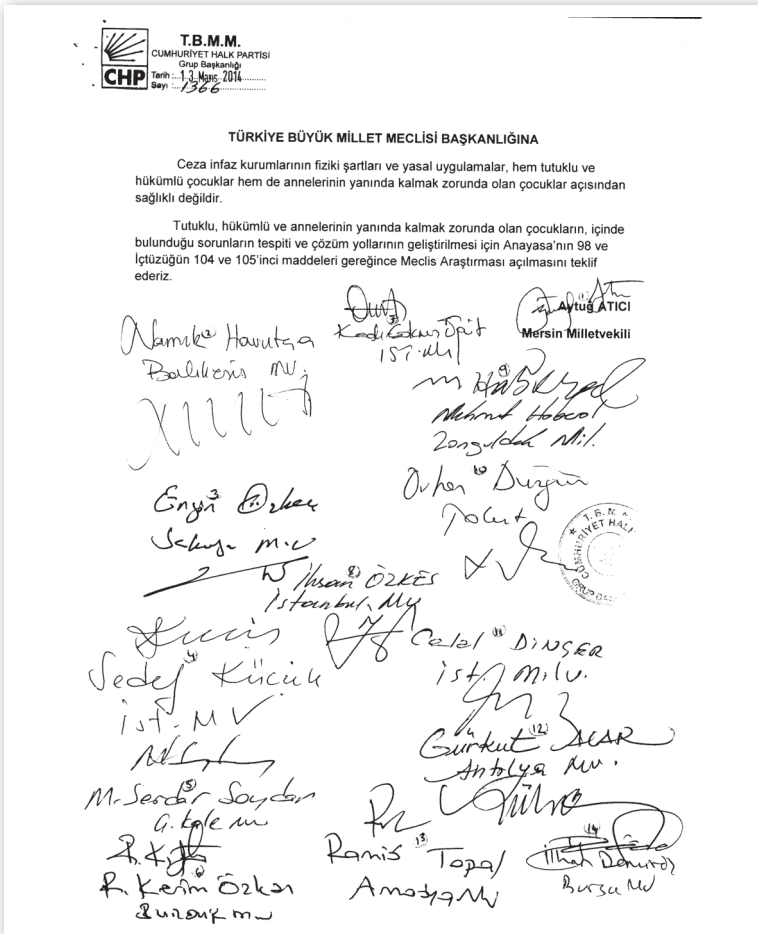 T.B.M.M.
CUMHURİYET HALK PARTİSİ
Grup Başkanlığı
CHP
Tarih :...13 Mart 2014
Sayı :...1366
TÜRKİYE BÜYÜK MİLLET MECLİSİ BAŞKANLIĞINA
Ceza infaz kurumlarının fiziki şartları ve yasal uygulamalar, hem tutuklu ve
hükümlü çocuklar hem de annelerinin yanında kalmak zorunda olan çocuklar açısından
sağlıklı değildir.
Tutuklu, hükümlü ve annelerinin yanında kalmak zorunda olan çocukların, içinde
bulunduğu sorunların tespiti ve çözüm yollarının geliştirilmesi için Anayasa'nın 98 ve
İçtüzüğün 104 ve 105'inci maddeleri gereğince Meclis Araştırması açılmasını teklif
ederiz.
Aytuğ ATICI
Mersin Milletvekili
Namık Havutça
Balıkesir MV.
İST. MV
9
Mehmet Haberal
Zonguldak Mil.
10
Orhan Düzgün
Tokat
3
Engin Özkoç
Sakarya M.V
T.B.M.
CUMHURİYET HALK
GRUP BAŞ
8
İhsan ÖZKES
İstanbul. MV
4
Sedef Küçük
İst. MV
11
Celal DİNÇER
İst. Milv.
12
Gürkut ACAR
Antalya Mv.
5
M. Serdar Soydan
Ç.Kale mv
6
R. Kerim Özkan
Burdur mv
13
Ramis Topal
Amasya MV
14
İlhan Demiröz
Bursa MV